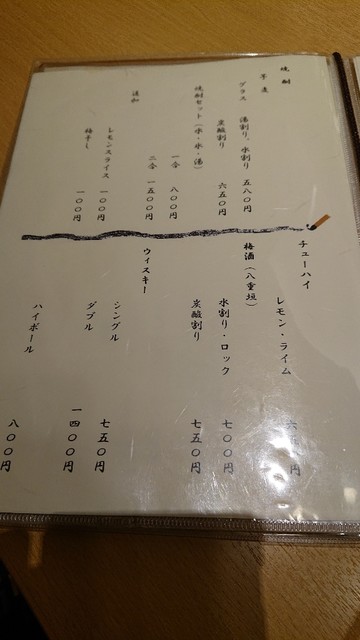 焼酎
芋 麦
グラス 湯割り、水割り 五八〇円
炭酸割り 六五〇円
焼酎セット(氷・水・湯)
一合 八〇〇円
二合 一五〇〇円
追加
レモンスライス 一〇〇円
梅干し 一〇〇円
チューハイ
レモン・ライム 六五〇円
梅酒(八重垣)
水割り・ロック 七〇〇円
炭酸割り 七五〇円
ウィスキー
シングル 七五〇円
ダブル 一四〇〇円
ハイボール 八〇〇円